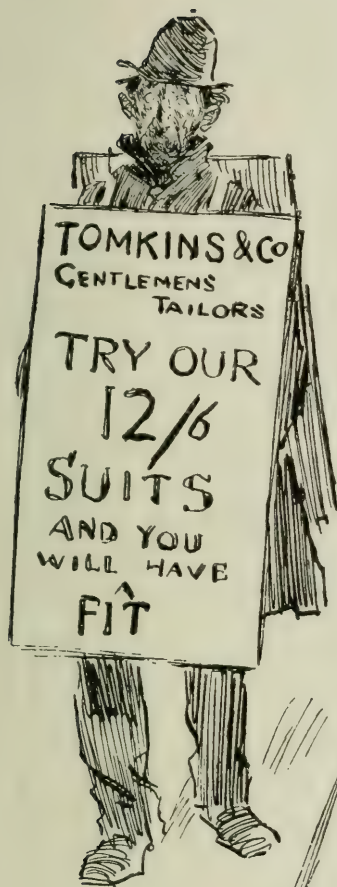 TOMKINS & Co
GENTLEMENS
TAILORS
TRY OUR
12/6
SUITS
AND YOU
WILL HAVE
^
FIT